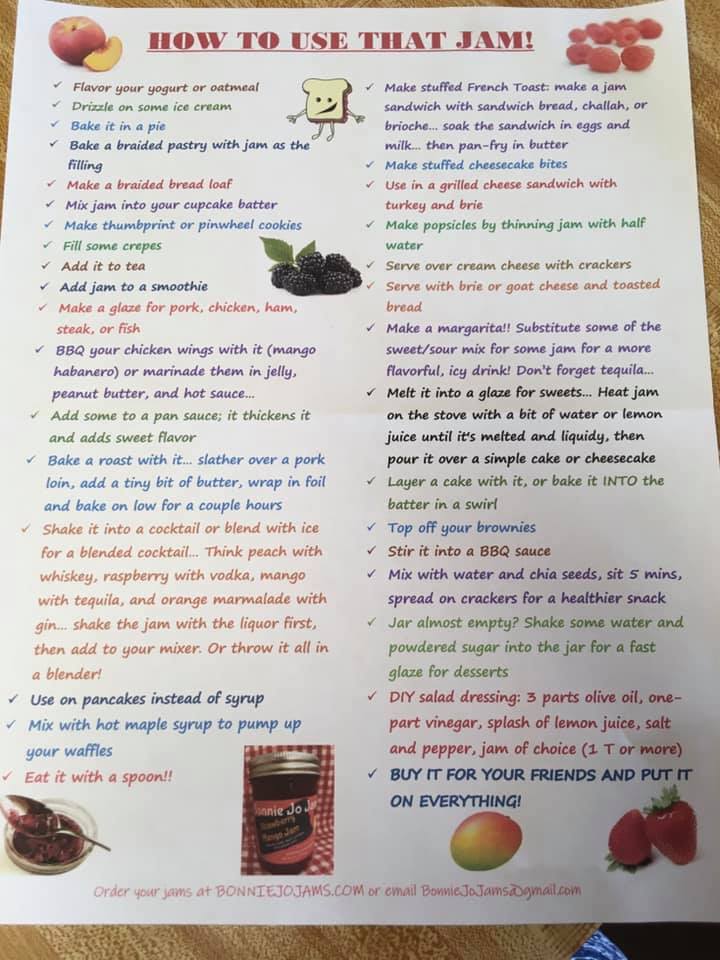 HOW TO USE THAT JAM!
✓ Flavor your yogurt or oatmeal
✓ Drizzle on some ice cream
✓ Bake it in a pie
✓ Bake a braided pastry with jam as the
filling
✓ Make a braided bread loaf
✓ Mix jam into your cupcake batter
✓ Make thumbprint or pinwheel cookies
✓ Fill some crepes
✓ Add it to tea
✓ Add jam to a smoothie
✓ Make a glaze for pork, chicken, ham,
steak, or fish
✓ BBQ your chicken wings with it (mango
habanero) or marinade them in jelly,
peanut butter, and hot sauce...
✓ Add some to a pan sauce; it thickens it
and adds sweet flavor
✓ Bake a roast with it... slather over a pork
loin, add a tiny bit of butter, wrap in foil
and bake on low for a couple hours
✓ Shake it into a cocktail or blend with ice
for a blended cocktail... Think peach with
whiskey, raspberry with vodka, mango
with tequila, and orange marmalade with
gin... shake the jam with the liquor first,
then add to your mixer. Or throw it all in
a blender!
✓ Use on pancakes instead of syrup
✓ Mix with hot maple syrup to pump up
your waffles
✓ Eat it with a spoon!!
✓ Make stuffed French Toast: make a jam
sandwich with sandwich bread, challah, or
brioche... soak the sandwich in eggs and
milk... then pan-fry in butter
✓ Make stuffed cheesecake bites
✓ Use in a grilled cheese sandwich with
turkey and brie
✓ Make popsicles by thinning jam with half
water
✓ Serve over cream cheese with crackers
✓ Serve with brie or goat cheese and toasted
bread
✓ Make a margarita!! Substitute some of the
sweet/sour mix for some jam for a more
flavorful, icy drink! Don't forget tequila...
✓ Melt it into a glaze for sweets... Heat jam
on the stove with a bit of water or lemon
juice until it's melted and liquidy, then
pour it over a simple cake or cheesecake
✓ Layer a cake with it, or bake it INTO the
batter in a swirl
✓ Top off your brownies
✓ Stir it into a BBQ sauce
✓ Mix with water and chia seeds, sit 5 mins,
spread on crackers for a healthier snack
✓ Jar almost empty? Shake some water and
powdered sugar into the jar for a fast
glaze for desserts
✓ DIY salad dressing: 3 parts olive oil, one-
part vinegar, splash of lemon juice, salt
and pepper, jam of choice (1 T or more)
✓ BUY IT FOR YOUR FRIENDS AND PUT IT
ON EVERYTHING!
onnie Jo Ja
Strawberry
Mango Jam
Order your jams at BONNIEJOJAMS.COM or email BonnieJoJams@gmail.com